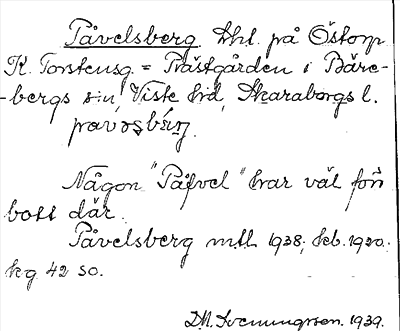 Påvelsberg thl. på Östorp
K. Torstensg. = Prästgården i Bäre-
-bergs sn, Viste hd, Skaraborgs l.
Någon "Påfvel" har väl förr
bott där.
Påvelsberg mtl 1938; heb. 1920.
kg 42 SO.
D.H. Svenungsson. 1939.